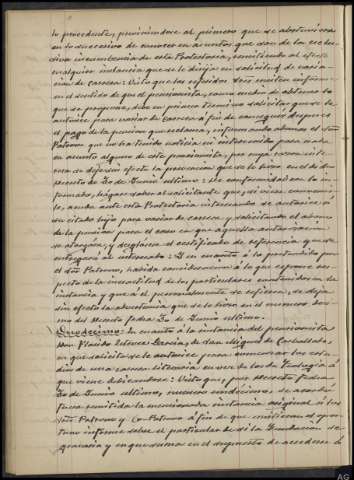 lo precedente, previniéndose al primero que se abstuviera
en lo sucesivo de conocer en asuntos que son de la exclu-
siva incumbencia de esta Protectoria, remitiendo al efecto
cualquier instancia que se le dirija en solicitud de varia-
ción de carrera: Visto que los referidos Sres. emiten informe
en el sentido de que el pensionista, como medio de obtener lo
que se propone, debe en primer término solicitar que se le
autorice para variar de carrera á fin de conseguir después
el pago de la pensión que reclama, informando además el Señor
Patrono que no ha tenido noticia ni intervenido para nada
en asunto alguno de este pensionista, por cuya razón inte-
resa se deje sin efecto la prevención que se le hizo en el de
decreto de 30 de Junio último: De conformidad con lo in-
formado, hágase saber al solicitante que, si viere convenir-
le, acuda ante esta Protectoria interesando se autorice á
su citado hijo para variar de carrera y solicitando el abono
de la pensión para el caso en que aquella autorización
se otorgase, y desglose el certificado de referencia que se
entregará al interesado: Y en cuanto á lo pretendido por
el Señor Patrono, habida consideración á lo que expone res-
pecto de la inexactitud de los particulares contenidos en la
instancia y que á él personalmente se refieren, se deja
sin efecto la advertencia que se le hizo en el número
del Decreto fecha 30 de Junio último.
Duodécimo: En cuanto á la instancia del pensionista
Don Plácido Esteves García, de San Miguel de Corbelle,
en que solicita se le autorice para comenzar los estu-
dios de una carrera literaria en vez de los de Teología á
que viene dedicándose: Visto que, por decreto fecha
30 de Junio último, número , se acordó
fuera remitida la mencionada instancia original á los
Sres. Patrono y Co-Patrono á fin de que emitieran el opor-
tuno informe sobre el particular de si la Fundación se
gravaría y en qué suma en el supuesto de acceder á